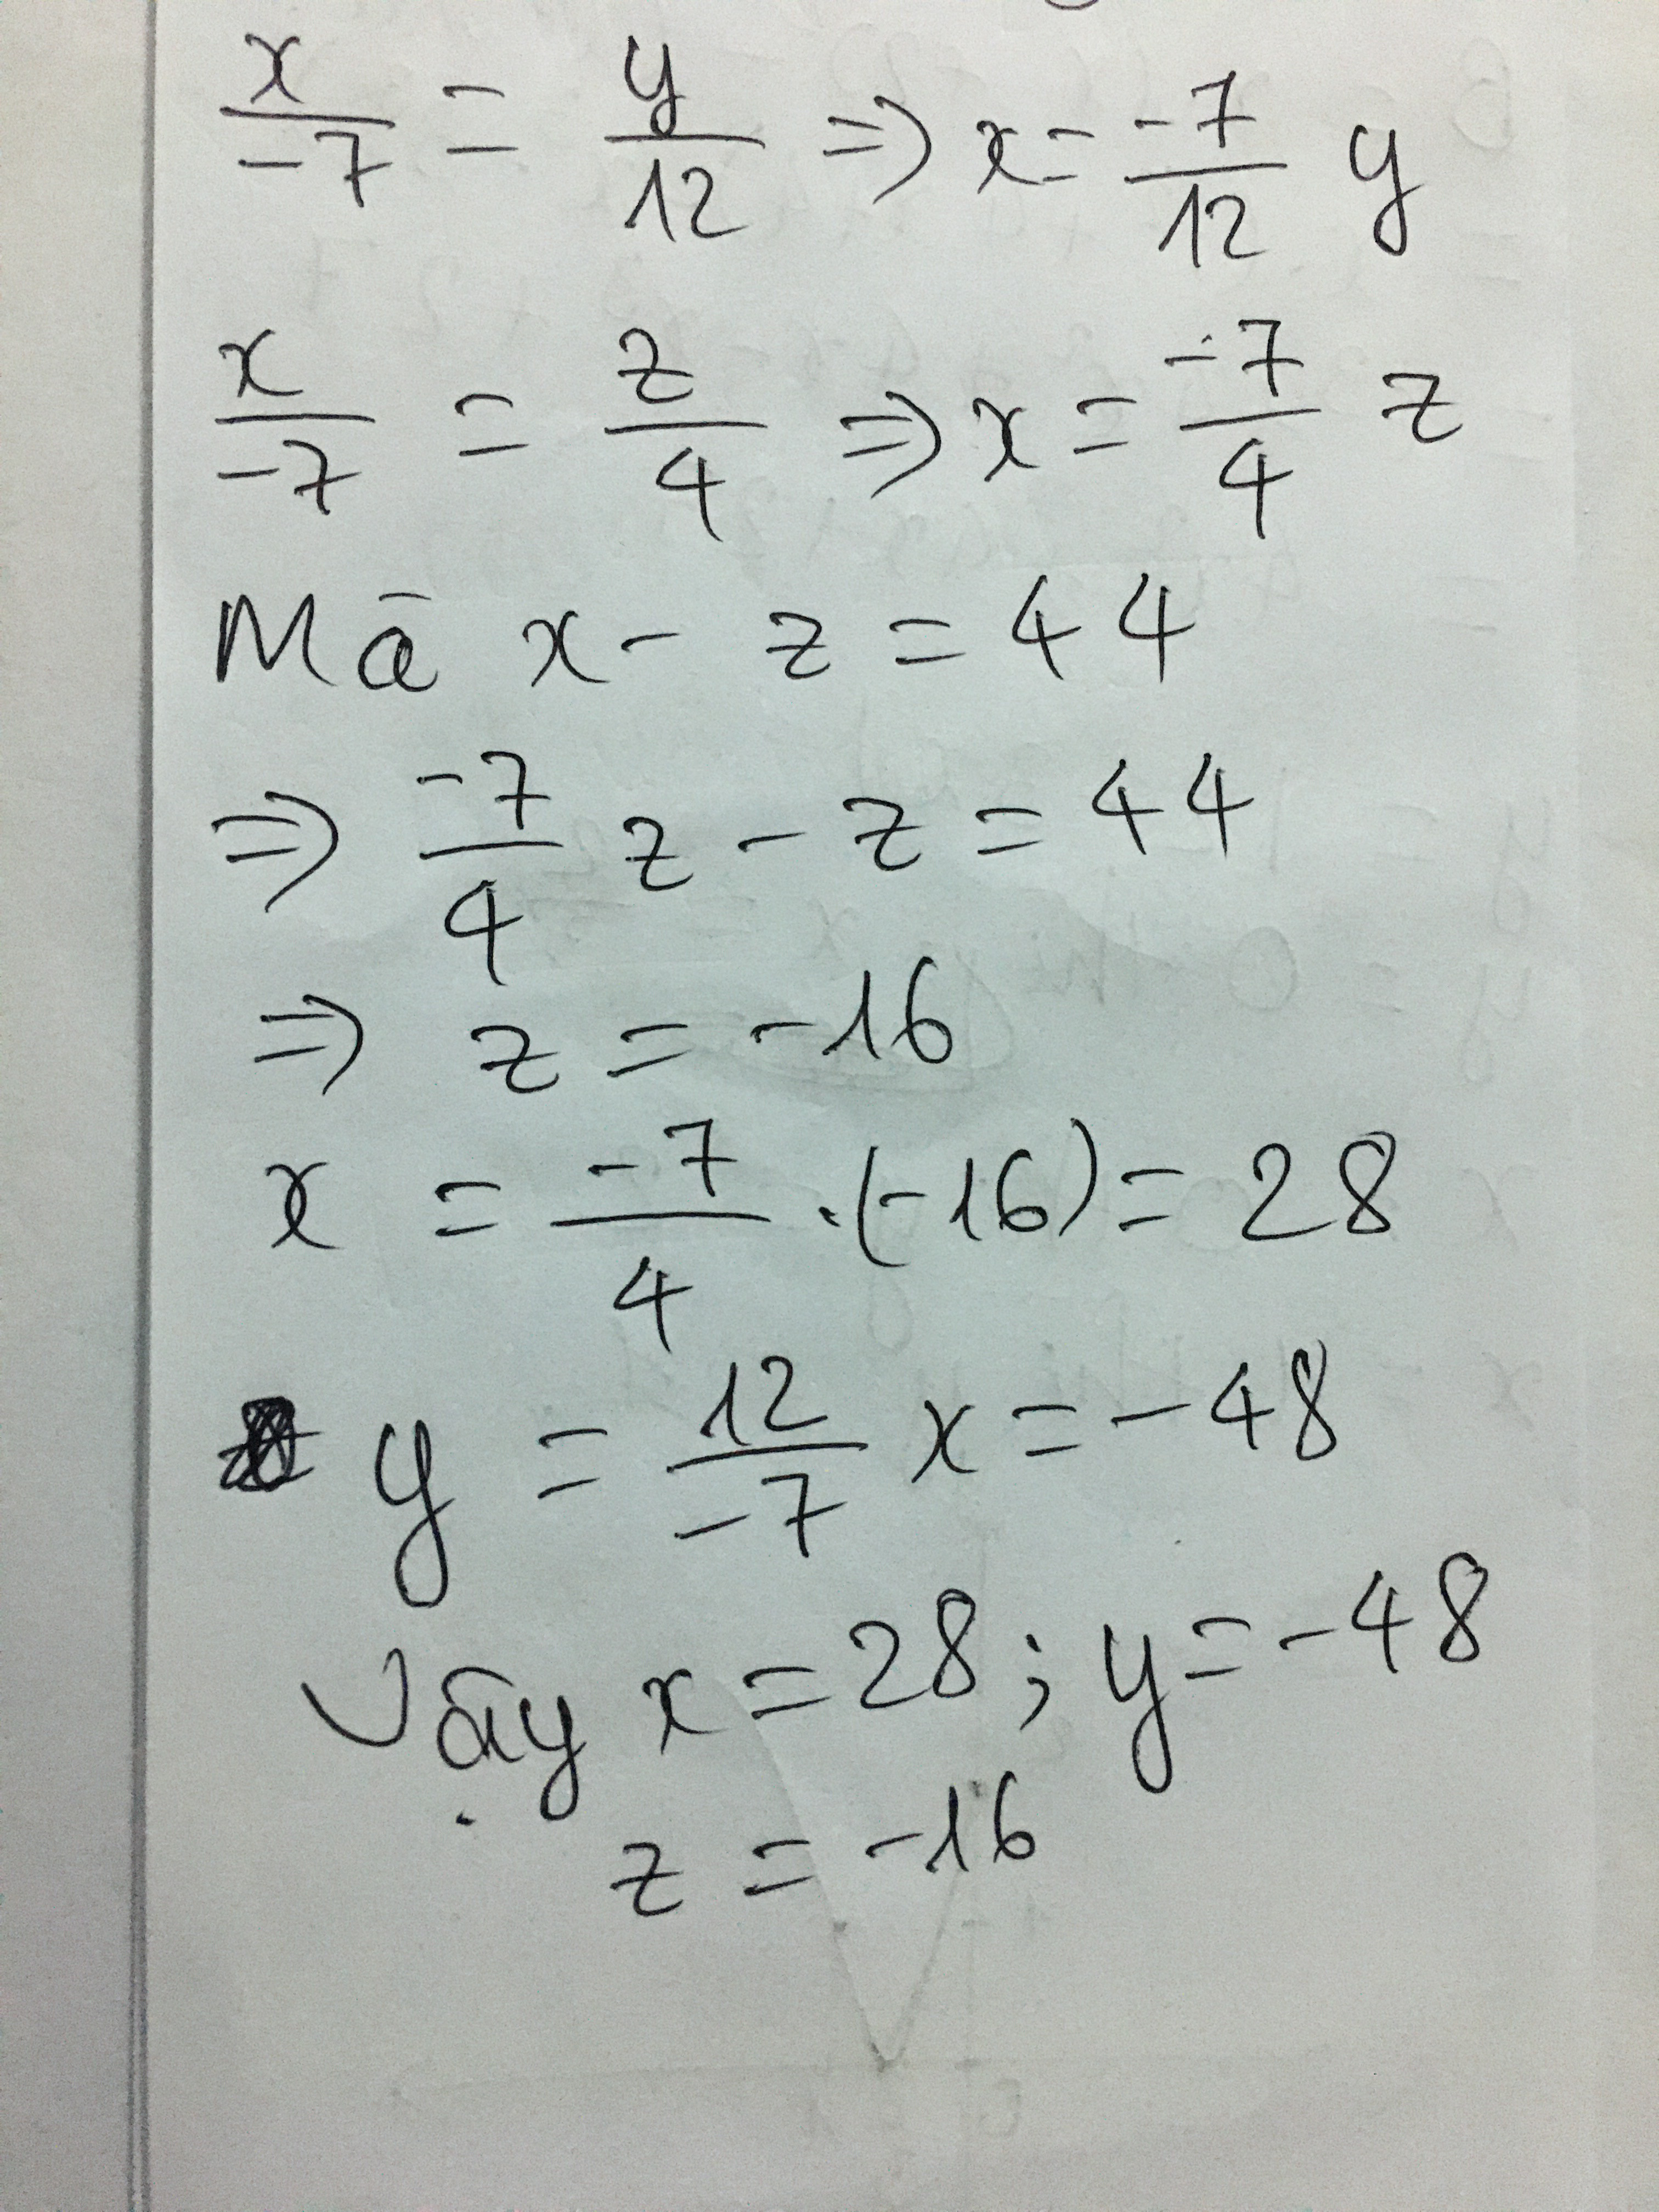 x/-7 = y/12 => x = -7/12 y
x/-7 = z/4 => x = -7/4 z
Mà x - z = 44
=> -7/4 z - z = 44
=> z = -16
x = -7/4 . (-16) = 28
y = 12/-7 x = -48
Vậy x = 28 ; y = -48
z = -16